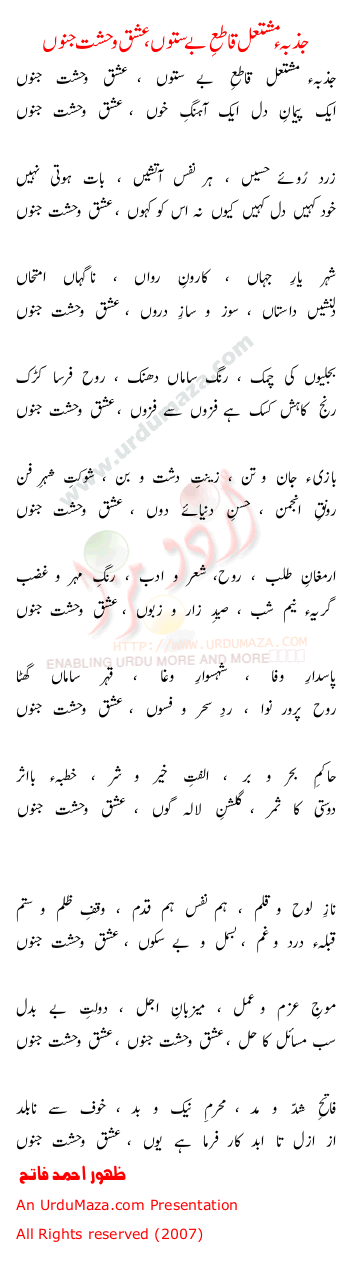 جذبہء مشتعل قاطعِ بے ستوں، عشق وحشت جنوں
جذبہء مشتعل قاطعِ بے ستوں ، عشق وحشت جنوں
ایک پیمانِ دل ایک آہنگِ خوں ، عشق وحشت جنوں
زرد رُوئے حسیں ، ہر نفس آتشیں ، بات ہوتی نہیں
خود کہیں دل کہیں کیوں نہ اس کو کہوں ، عشق وحشت جنوں
شہر یارِ جہاں ، کارونِ رواں ، ناگہاں امتحاں
دلنشیں داستاں ، سوز و سازِ دروں ، عشق وحشت جنوں
بجلیوں کی چمک ، رنگ ساماں دھنک ، روح فرسا کڑک
رنج کاہش کسک ہے فزوں سے فزوں ، عشق وحشت جنوں
بازیء جان و تن ، زینتِ دشت و بن ، شوکتِ شہرِ فن
رونقِ انجمن ، حسنِ دنیائے دوں ، عشق وحشت جنوں
ارمغانِ طلب ، روحِ شعر و ادب ، رنگِ مہر و غضب
گریہء نیم شب ، صیدِ زار و زبوں ، عشق وحشت جنوں
پاسدارِ وفا ، شہسوارِ وغا ، قہر ساماں گھٹا
روح پرور نوا ، ردِ سحر و فسوں ، عشق وحشت جنوں
حاکمِ بحر و بر ، الفتِ خیر و شر ، خطبہء بااثر
دوستی کا ثمر ، گلشنِ لالہ گوں ، عشق وحشت جنوں
نازِ لوح و قلم ، ہم نفس ہم قدم ، وقفِ ظلم و ستم
قبلہء درد و غم ، بسمل و بے سکوں ، عشق وحشت جنوں
موجِ عزم و عمل ، میزبانِ اجل ، دولتِ بے بدل
سب مسائل کا حل ، عشق وحشت جنوں ، عشق وحشت جنوں
فاتحِ شدّ و مد ، محرمِ نیک و بد ، خوف سے نابلد
از ازل تا ابد کار فرما ہے یوں ، عشق وحشت جنوں
ظہور احمد فاتح
An UrduMaza.com Presentation
All Rights reserved (2007)
www.urdumaza.com
اردو مزا
HTTP://WWW.URDUMAZA.COM
ENABLING URDU MORE AND MORE